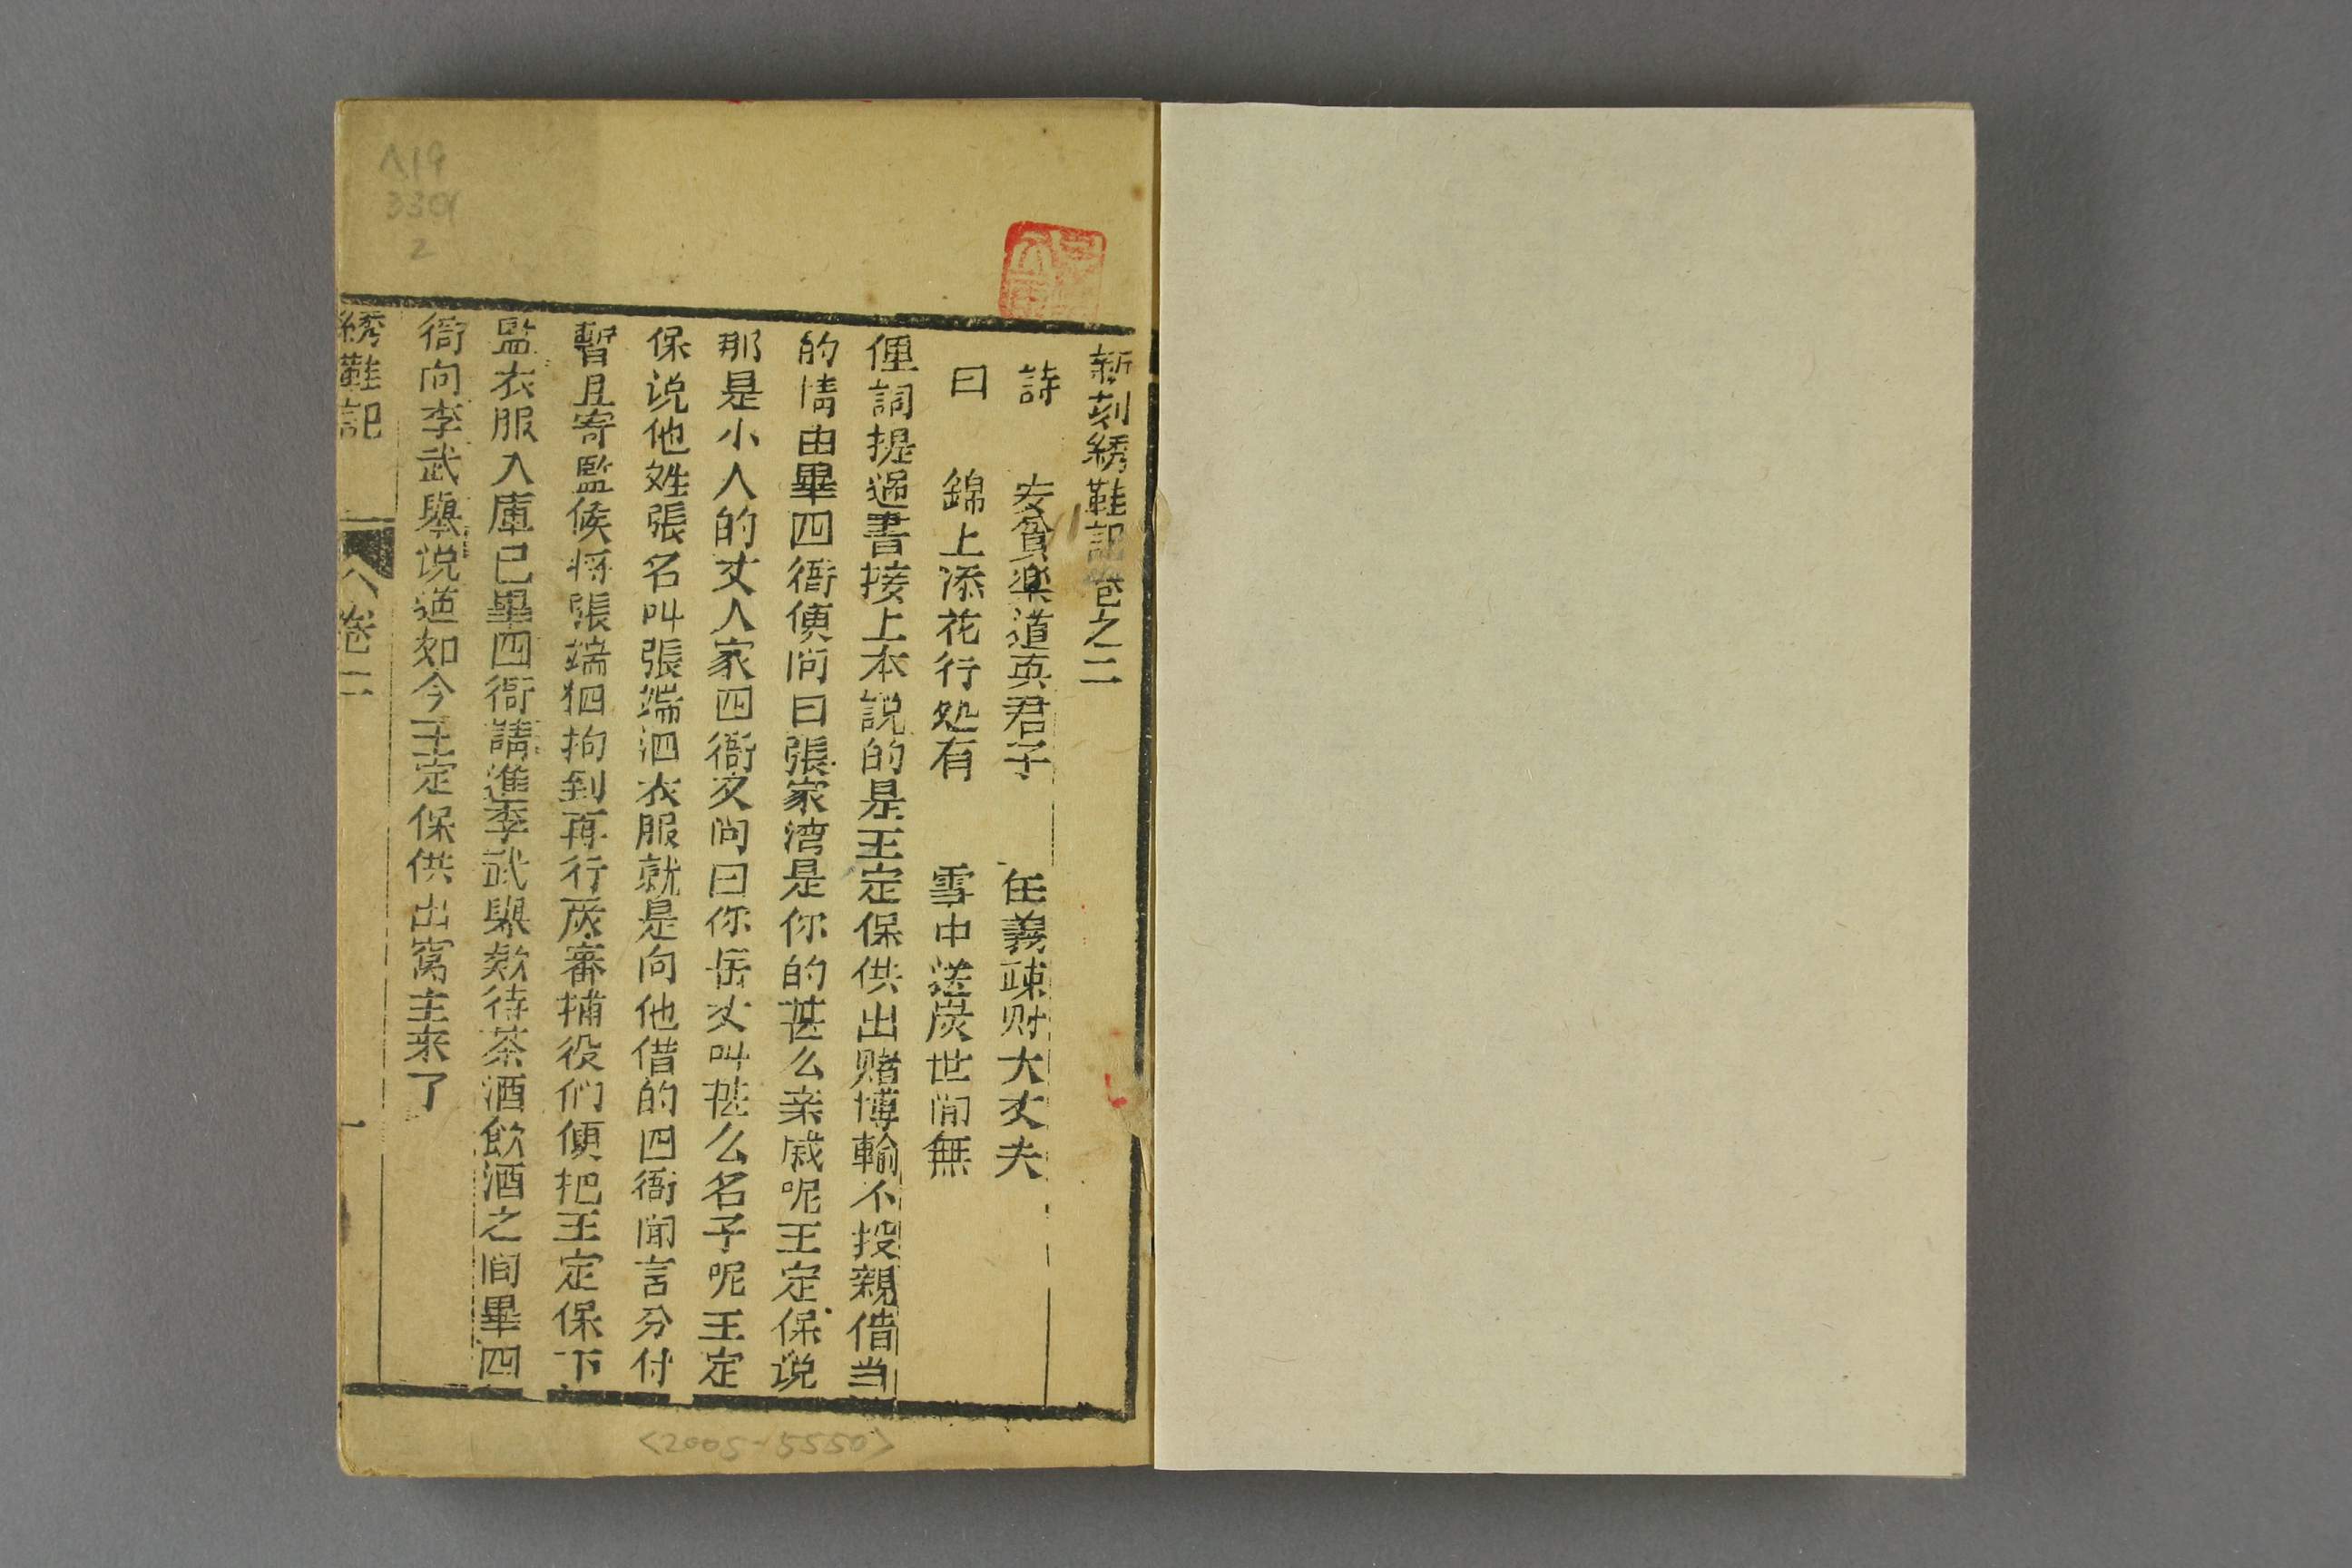 新刻綉鞋記卷之二
詩 安貧楽道真君子 任義疎财大丈夫
曰 錦上添花行処有 雪中送炭世间無
俚詞提過書接上本説的是王定保供出赌博輸不投親借当
的情由畢四衙便问曰張家湾是你的甚么亲戚呢王定保说
那是小人的丈人家四衙又问曰你岳丈叫甚么名子呢王定
保说他姓張名叫張端泗衣服就是向他借的四衙闻言分付
暫且寄監候将張端泗拘到再行审捕役们便把王定保下
監衣服入庫已畢四衙請進李武舉欵待茶酒飲酒之间畢四
衙向李武舉说道如今王定保供出窩主来了
綉鞋記 卷二 一
Λ19
3301
2
<2005-5550>